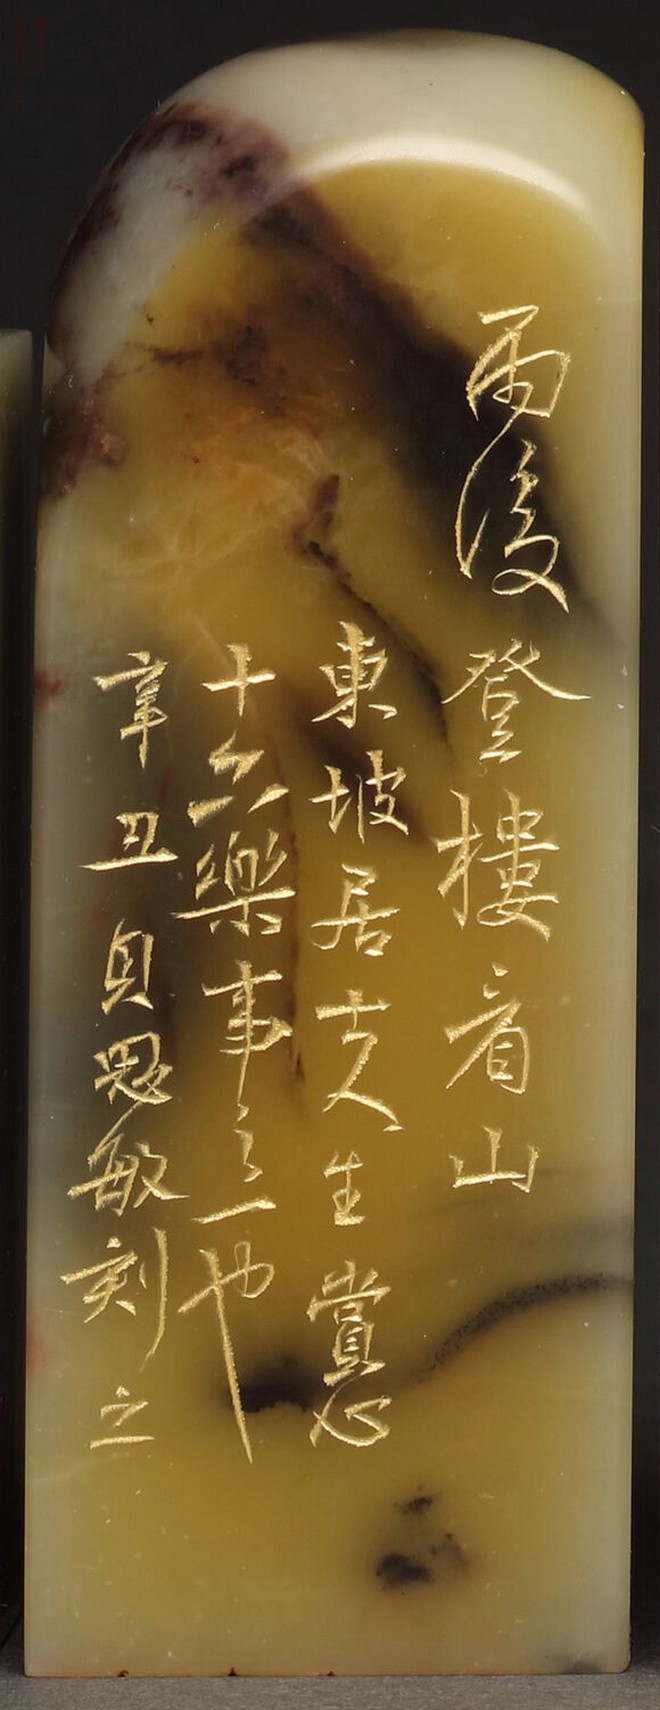 雨後登樓看山
東坡居士人生賞心
十六樂事之一也
辛丑貞思敏刻之